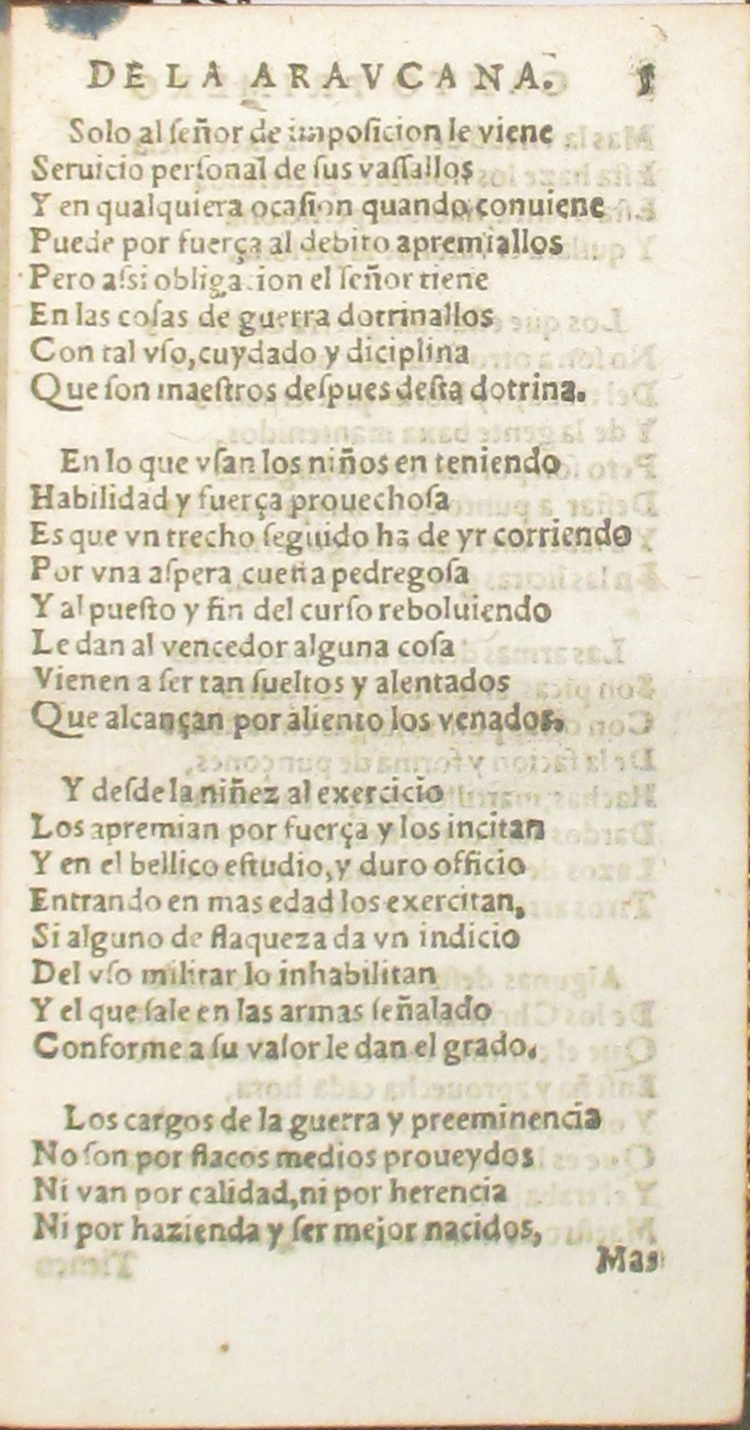 DE LA ARAVCANA.
Solo al ſeñor de impoſicion le viene
Seruicio perſonal de ſus vaſſallos
Y en qualquiera ocaſion quando conuiene
Puede por fuerça al debito apremiallos
Pero aſsi obligacion el ſeñor tiene
En las coſas de guerra dotrinallos
Con tal vſo, cuydado y diciplina
Que ſon maeſtros deſpues deſta dotrina.
En lo que vſan los niños en teniendo
Habilidad y fuerça prouechoſa
Es que vn trecho ſeguido ha de yr corriendo
Por vna aſpera cueſta pedregoſa
Y al pueſto y fin del curſo reboluiendo
Le dan al vencedor alguna coſa
Vienen a ſer tan ſueltos y alentados
Que alcançan por aliento los venados.
Y deſde la niñez al exercicio
Los apremian por fuerça y los incitan
Y en el bellico eſtudio, y duro officio
Entrando en mas edad los exercitan,
Si alguno de flaqueza da vn indicio
Del vſo militar lo inhabilitan
Y el que ſale en las armas ſeñalado
Conforme a ſu valor le dan el grado.
Los cargos de la guerra y preeminencia
No ſon por flacos medios proueydos
Ni van por calidad, ni por herencia
Ni por hazienda y ſer mejor nacidos,
Mas